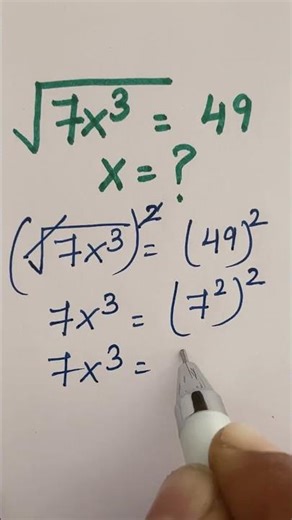 √7x³ = 49
x = ?
(√7x³)² = (49)²
7x³ = (7²)²
7x³ =